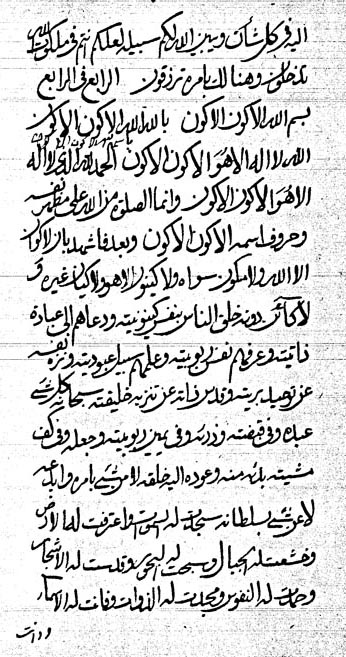 اليه في كل شأن ويبين الله لكم سبيله لعلكم انتم في ملكوت الله
تدخلون وهنالك بامره ترزقون الرابع في الرابع
بسم الله الاكون الاكون بالله الله الاكون الاكون
الله لا اله الا هو الاكون الاكون الحمد لله الذي لا اله
الا هو الاكون الاكون وانما الصلوة من الله على مظهر نفسه
وحروف اسمه الاكون الاكون وبعد فاشهد بان لا كوان
الا الله ولا مكون سواه ولا كينون الا هو ولا كيان غيره و
لا كائن دونه خلق الناس بنفس كينونيته ودعاهم الى عبادة
ذاتيته وعرفهم نفس ربوبيته وعلمهم سبيل عبوديته ونزه نفسه
عن توحيد بريته وقدس ذاته عن تنزيه خليقته سبحانه كل شيء
عباده وفي قبضته وذرئه وفي يمين ربوبيته وجعله وفي كف
مشيته بدئه منه وعوده اليه خلقه لا من شيء بامره وابدعه
لا عن شيء بسلطانه سجدت له السموات واعترفت له الارض
وخشعت له الجبال وسبحت له البحور وقدست له الاشجار
وحمدت له النفوس ومجدت له الذوات وقانت له الاثمار
ودانت